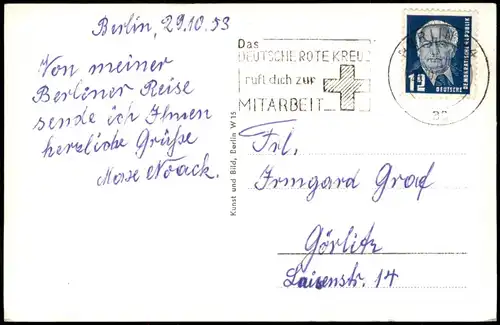 Berlin, 29.10.53
Von meiner
Berliner Reise
sende ich Ihnen
herzliche Grüße
Noack.
Kunst und Bild, Berlin W 15
Das
DEUTSCHE ROTE KREUZ
ruft dich zur
MITARBEIT
12
DEUTSCHE
DEMOKRATISCHE REPUBLIK
Frl.
Irmgard Graf
Görlitz
Luisenstr. 14